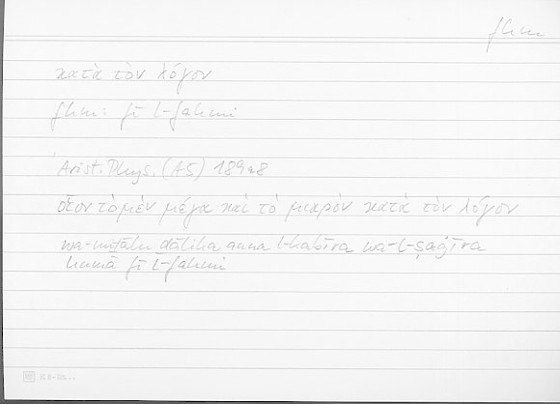 fhm
κατὰ τὸν λόγον
fhm: fī l-fahmi
Arist. Phys. (A5) 189a8
οἷον τὸ μὲν μέγα καὶ τὸ μικρὸν κατὰ τὸν λόγον
wa-miṯālu ḏālika anna l-kabīra wa-l-ṣaġīra
humā fī l-fahmi